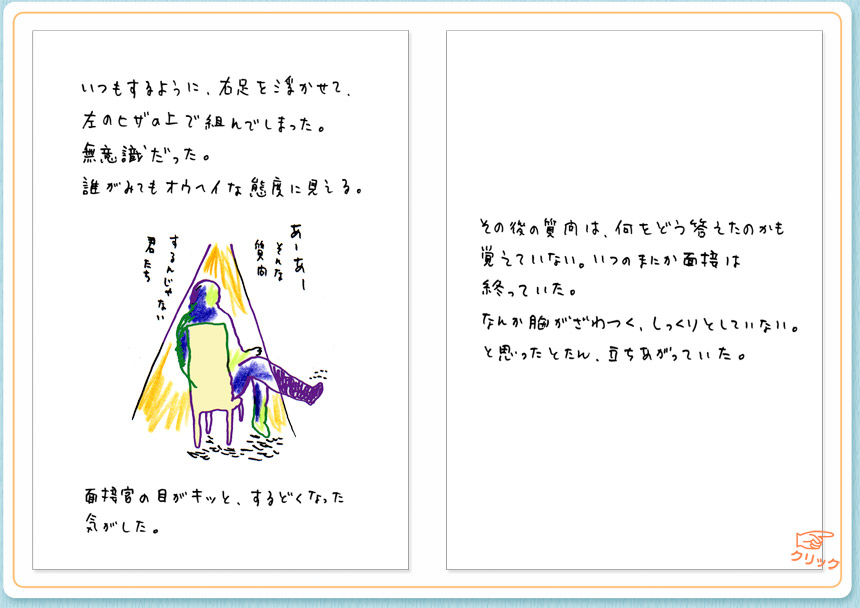 いつもするように、右足を浮かせて、
左のヒザの上で組んでしまった。
無意識だった。
誰がみてもオウヘイな態度に見える。
あーあー
そんな
質向
するんじゃない
君たち
面接官の目がキッと、するどくなった
気がした。
その後の質向は、何をどう答えたのかも
覚えていない。いつのまにか面接は
終っていた。
なんか胸がざわつく、しっくりとしていない。
と思ったとたん、立ちあがっていた。
クリック